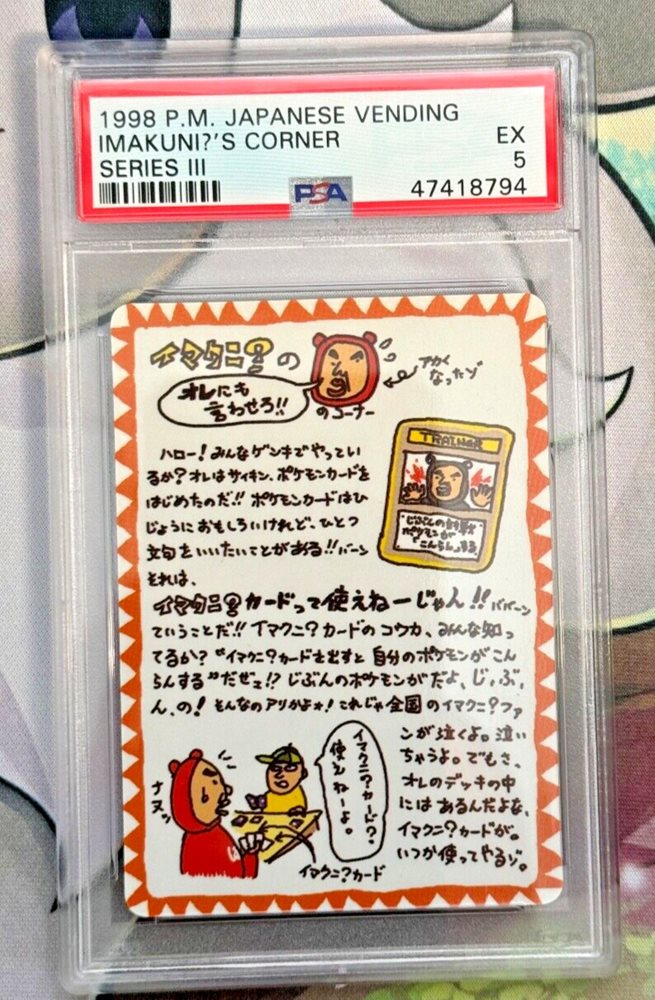 1998 P.M. JAPANESE VENDING
IMAKUNI?'S CORNER EX
SERIES III 5
PSA 47418794
イマクニ?の
オレにも
言わせろ!!
のコーナー
アカく
なったゾ
ハロー!みんなゲンキでやってい
るか?オレはサイキン、ポケモンカードを
はじめたのだ!!ポケモンカードはひ
じょうにおもしろいけれど、ひとつ
文句をいいたいことがある!!バーン
それは、
TRAINER
じぶんの対戦
ポケモンが
「こんらん」する
イマクニ?カードって使えねーじゃん!!ババーン
ていうことだ!!イマクニ?カードのコウカ、みんな知っ
てるか?“イマクニ?カードを出すと自分のポケモンがこん
らんする”だぜェ!?じぶんのポケモンがだよ、じ、ぶ、
ん、の!そんなのアリかよォ!これじゃ全国のイマクニ?ファ
ンが泣くよ。泣い
ちゃうよ。でもさ、
オレのデッキの中
にはあるんだよな、
イマクニ?カードが。
いつか使ってやるゾ。
イマクニ?カード?
使えねーよ。
ナヌッ
イマクニ?カード